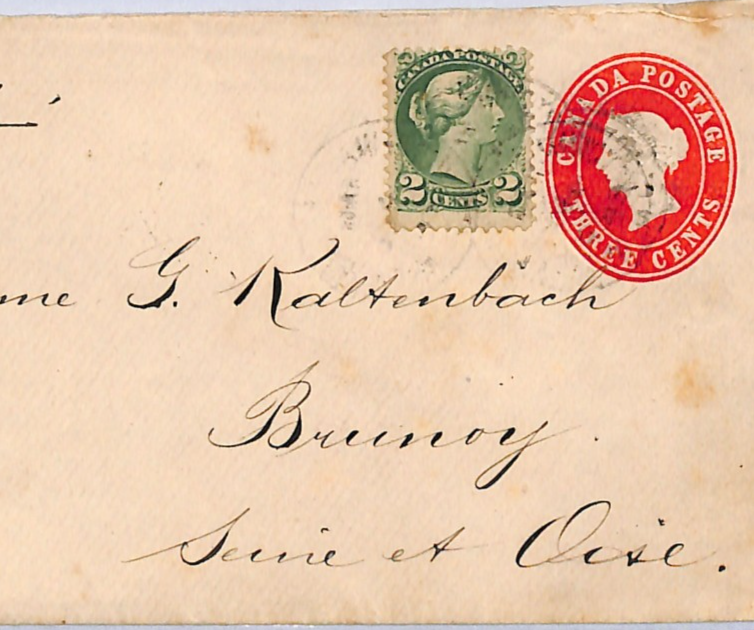 CANADA POSTAGE
2 CENTS 2
CANADA POSTAGE
THREE CENTS
me G. Kaltenbach
Brunoy.
Seine et Oise.